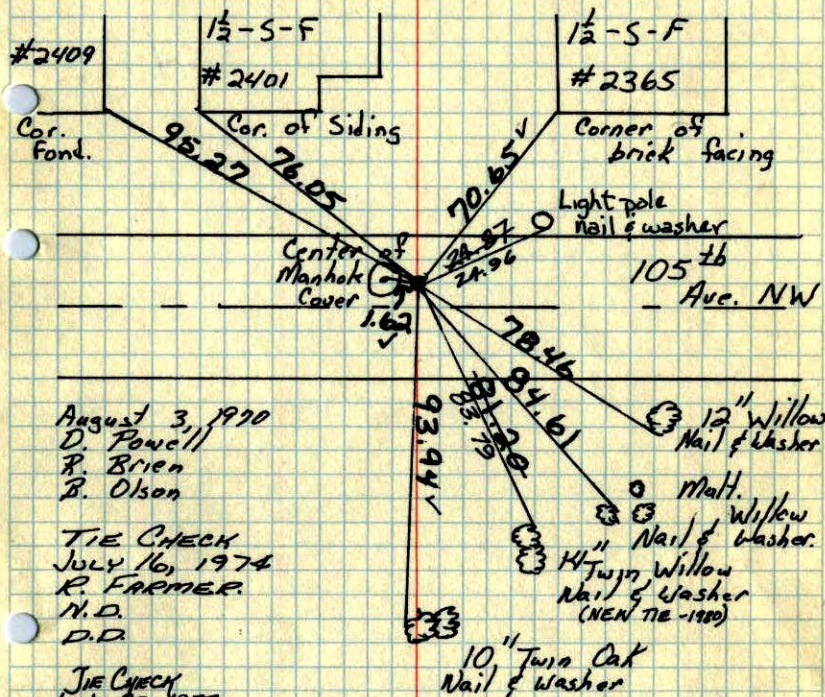 1½-S-F
1½-S-F
#2409
#2401
#2365
Cor.
Fond.
Cor. of Siding
Corner of
brick facing
95.27
76.05
70.65 ✓
Light pole
Nail & washer
24.87
24.96
Center of
Manhole
Cover
105th
Ave. NW
1.62
✓
78.46
84.61
81.20
83.79
93.94 ✓
12" Willow
Nail & Washer
Mult.
Willow
Nail & Washer.
14" Twin Willow
Nail & Washer
(NEW TIE -1980)
10" Twin Oak
Nail & Washer
August 3, 1970
D. Powell
R. Brien
B. Olson
TIE CHECK
JULY 16, 1974
R. FARMER.
N.D.
D.D.
TIE CHECK